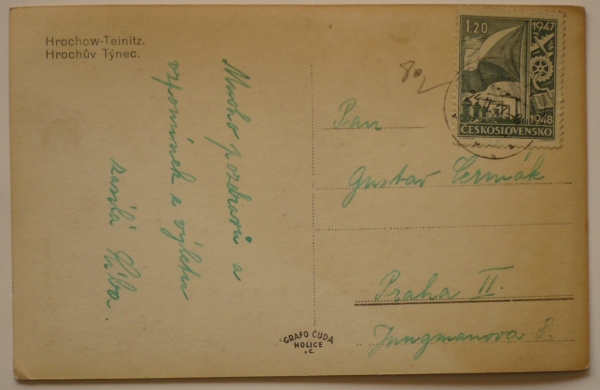 Hrochow-Teinitz.
Hrochův Týnec.
Mnoho pozdravů a
vzpomínek z výletu
zasílá Liba.
1.20
1947
1948
ČESKOSLOVENSKO
Pan
Gustav Čermák
Praha II.
Jungmanova 8.
GRAFO ČUDA
HOLICE